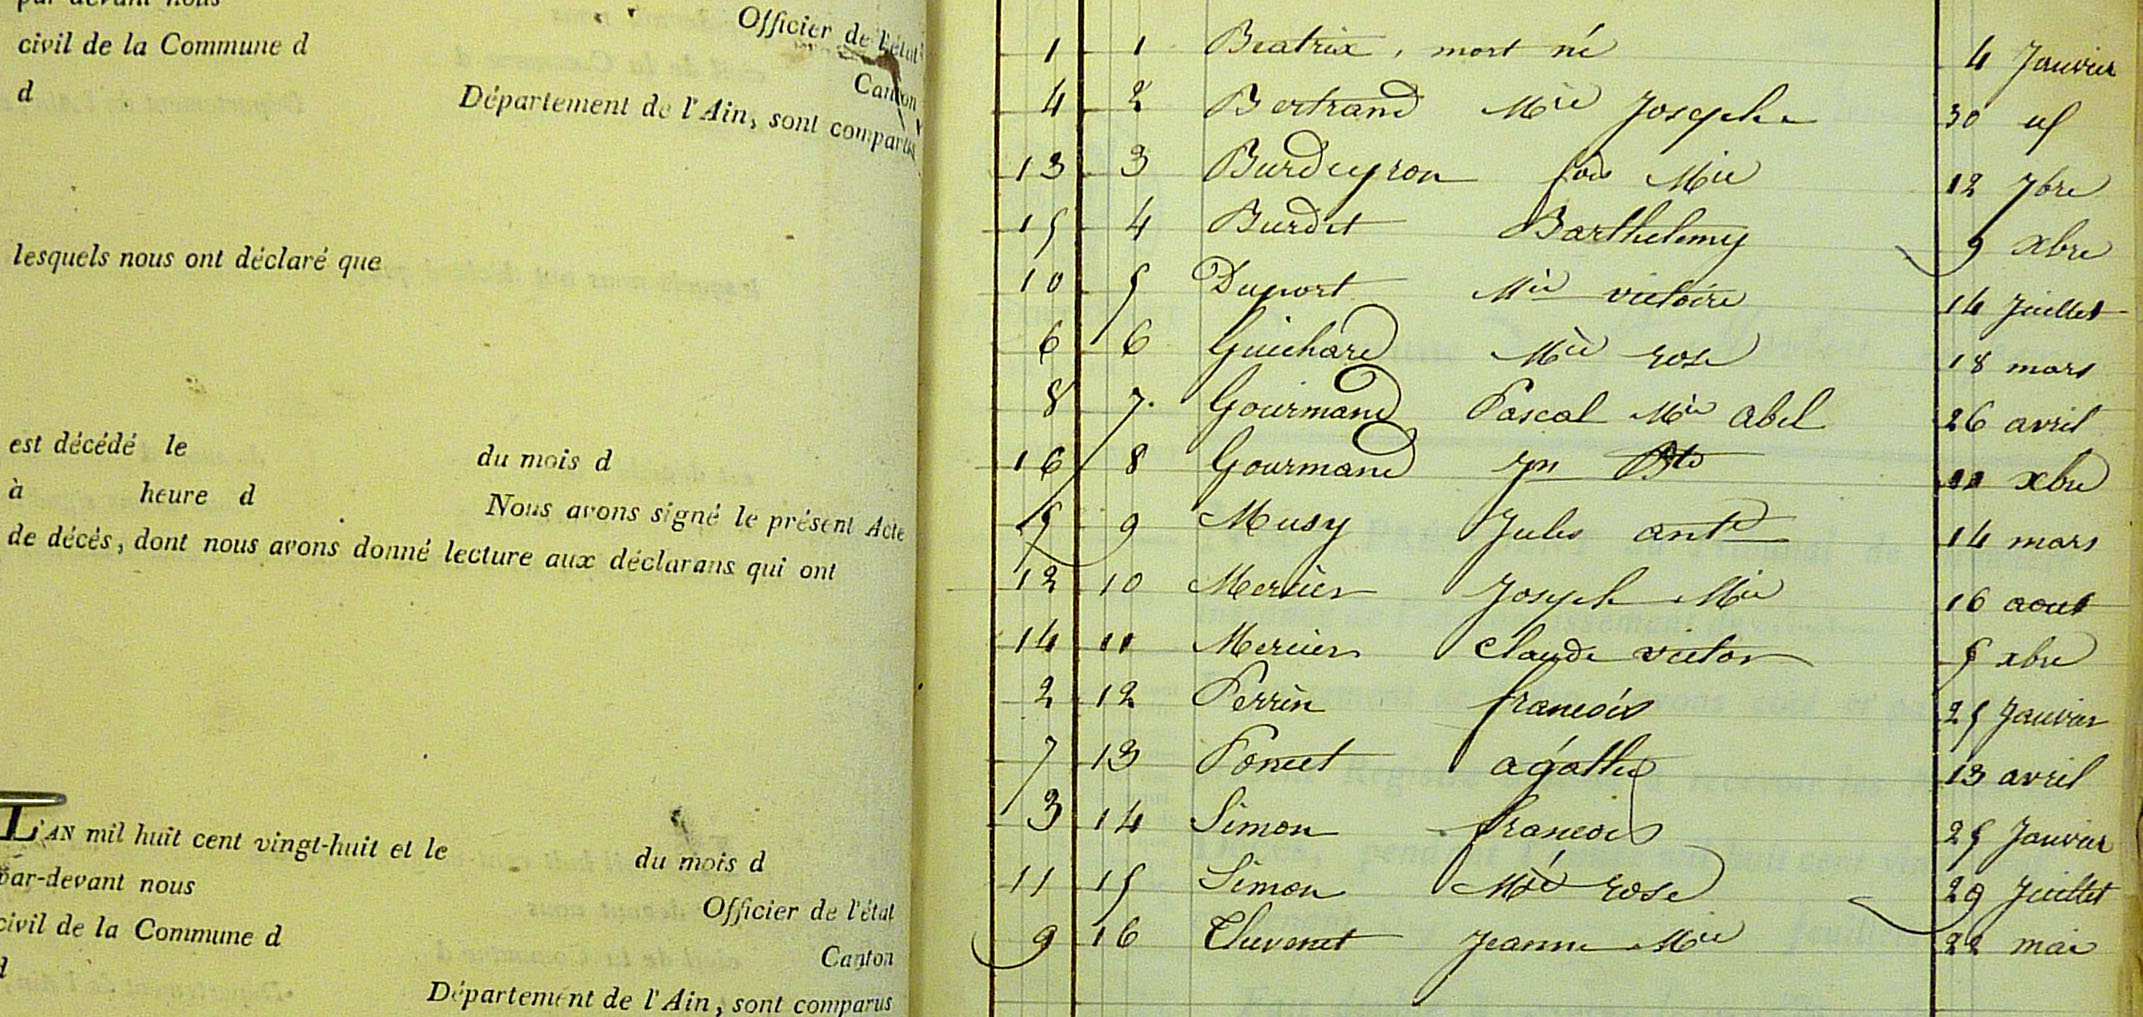 par devant nous
Officier de l'état
civil de la Commune d
Canton
d
Département de l'Ain, sont comparus
lesquels nous ont déclaré que
est décédé le du mois d
à heure d . Nous avons signé le présent Acte
de décès, dont nous avons donné lecture aux déclarans qui ont
L'AN mil huit cent vingt-huit et le du mois d
par-devant nous Officier de l'état
civil de la Commune d Canton
d
Département de l'Ain, sont comparus
1 1 Beatrix, mort né 4 Janvier
4 2 Bertrand Mie Josephe 30 id
13 3 Burdeyron fois Mie 12 7bre
15 4 Burdet Barthelemy 9 xbre
10 5 Duport Mie victoire 14 Juillet
6 6 Guichard Mie rose 18 mars
8 7. Gourmand Pascal Mie abel 26 avril
16 8 Gourmand Jn Bte 11 xbre
5 9 Musy Jules ante 14 mars
12 10 Mercier Joseph Mie 16 aout
14 11 Mercier Claude victor 5 xbre
2 12 Perrin francois 25 Janvier
7 13 Poncet agathe 13 avril
3 14 Simon francois 25 Janvier
11 15 Simon Mie rose 29 Juillet
9 16 Thevenet Jeanne Mie 22 mai